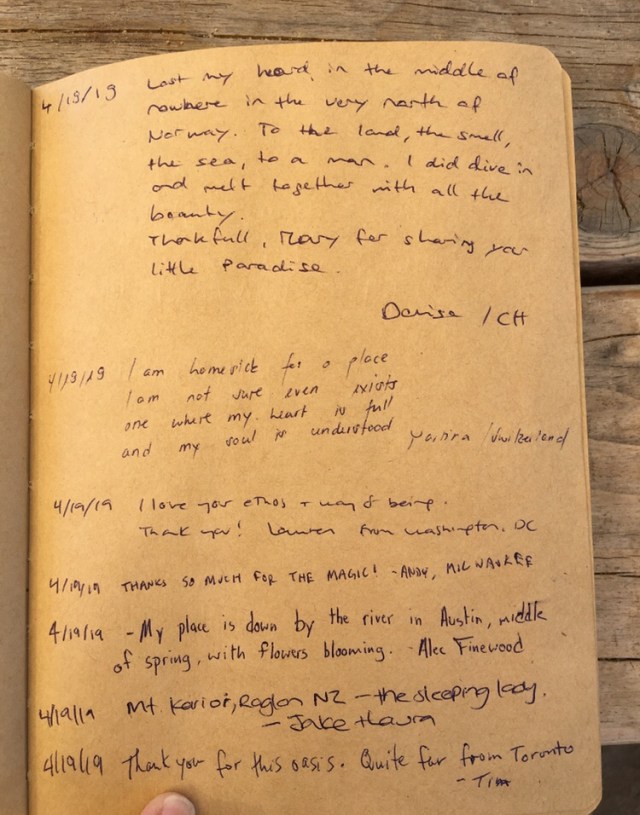 4/19/19 Lost my heard, in the middle of
nowhere in the very north of
Norway. To the land, the smell,
the sea, to a man. I did dive in
and melt together with all the
beauty.
Thankfull, Mary for sharing your
little Paradise.
Denise /CH
4/19/19 I am homesick for a place
I am not sure even exists
one where my heart is full
and my soul is understood
Yanina /Switzerland
4/19/19 I love your ethos + way of being.
Thank you! Lauren from Washington, DC
4/19/19 THANKS SO MUCH FOR THE MAGIC! -ANDY, MILWAUKEE
4/19/19 - My place is down by the river in Austin, middle
of spring, with flowers blooming. - Alec Finewood
4/19/19 Mt. Karioi, Raglan NZ - the sleeping lady.
- Jake + Laura
4/19/19 Thank you for this oasis. Quite far from Toronto
- Tim